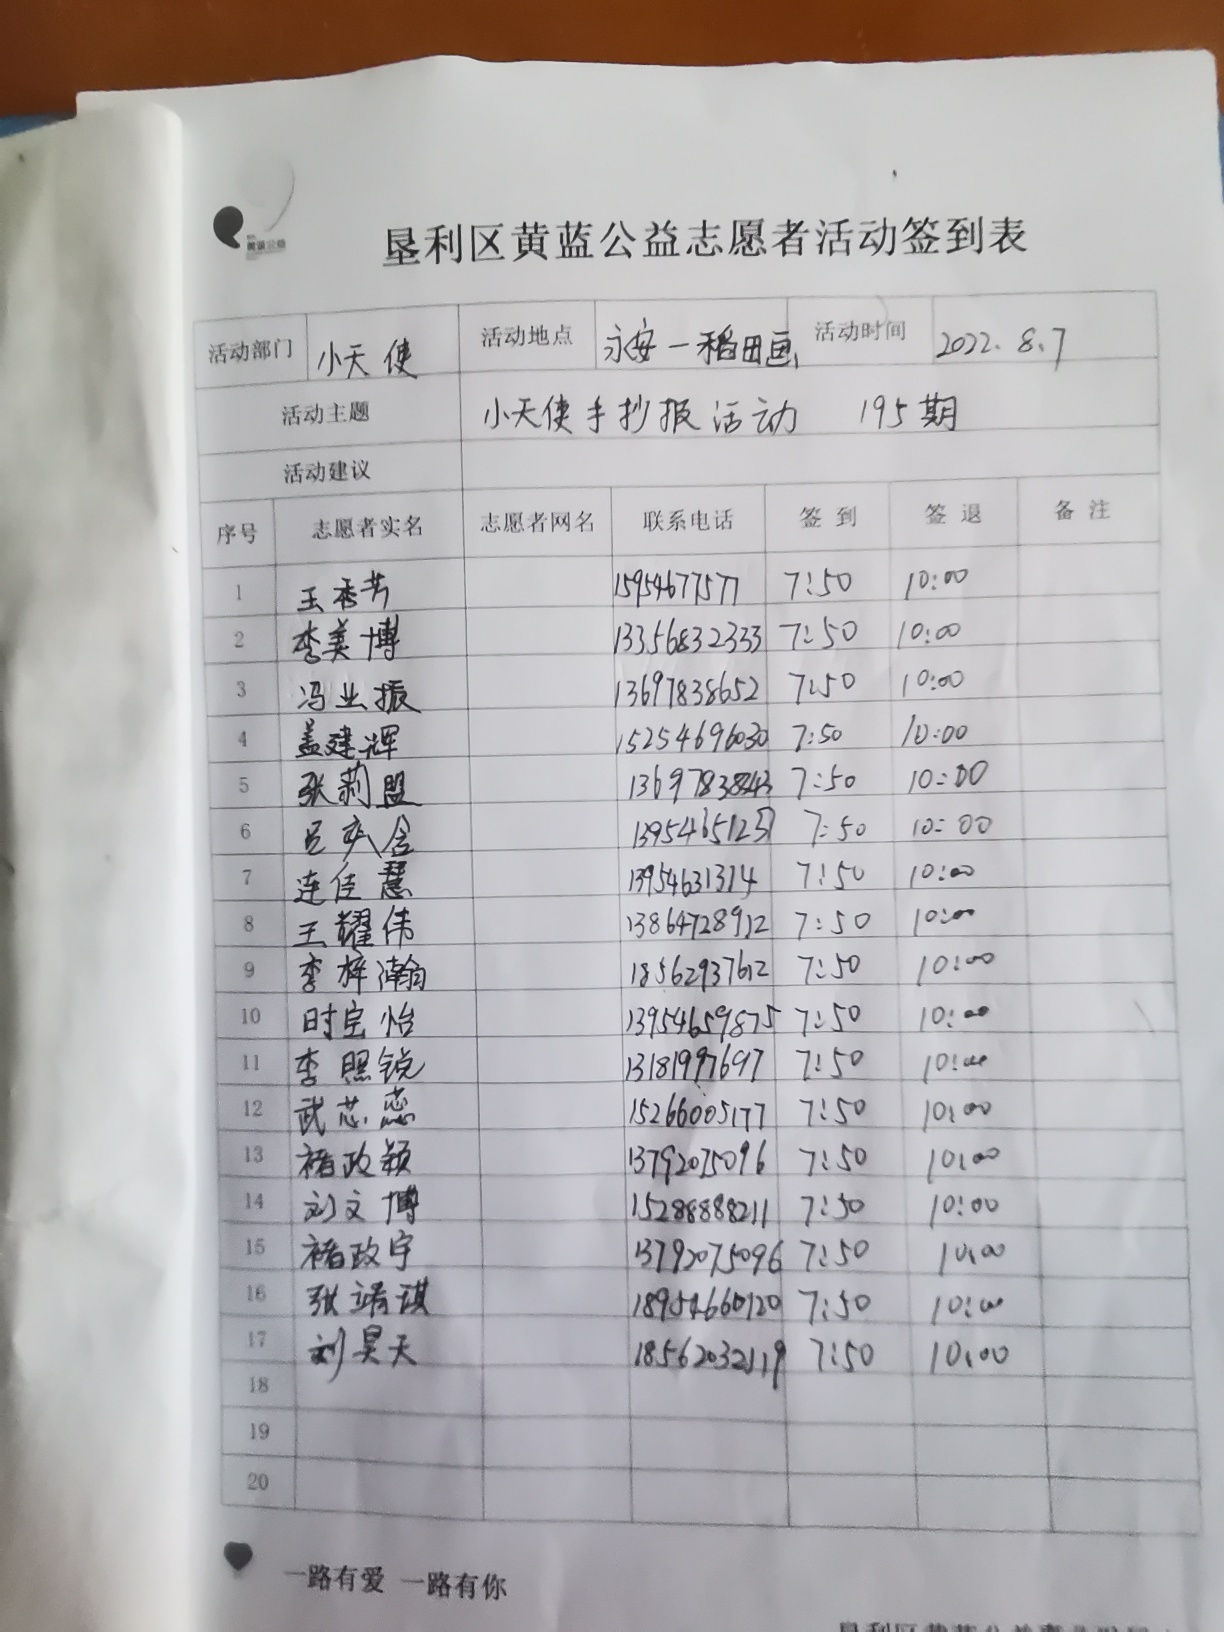 垦利区黄蓝公益志愿者活动签到表
活动部门 小天使 活动地点 永安一稻田画 活动时间 2022.8.7
活动主题 小天使手抄报活动 195期
活动建议
序号 志愿者实名 志愿者网名 联系电话 签到 签退 备注
1 王秀芳 15954677577 7:50 10:00
2 李美博 13356832333 7:50 10:00
3 冯业振 13697838652 7:50 10:00
4 盖建辉 15254696030 7:50 10:00
5 张莉盟 7:50 10:00
6 7:50 10:00
7 连佳慧 13954631314 7:50 10:00
8 王耀伟 13864728912 7:50 10:00
9 李梓瀚 18562937612 7:50 10:00
10 时宝怡 13954659875 7:50 10:00
11 李照锐 13181997697 7:50 10:00
12 武芯蕊 15266005177 7:50 10:00
13 褚政颖 13792075096 7:50 10:00
14 刘文博 15288888211 7:50 10:00
15 褚政宇 13792075096 7:50 10:00
16 张靖琪 18954660120 7:50 10:00
17 刘昊天 18562032119 7:50 10:00
18
19
20
一路有爱 一路有你